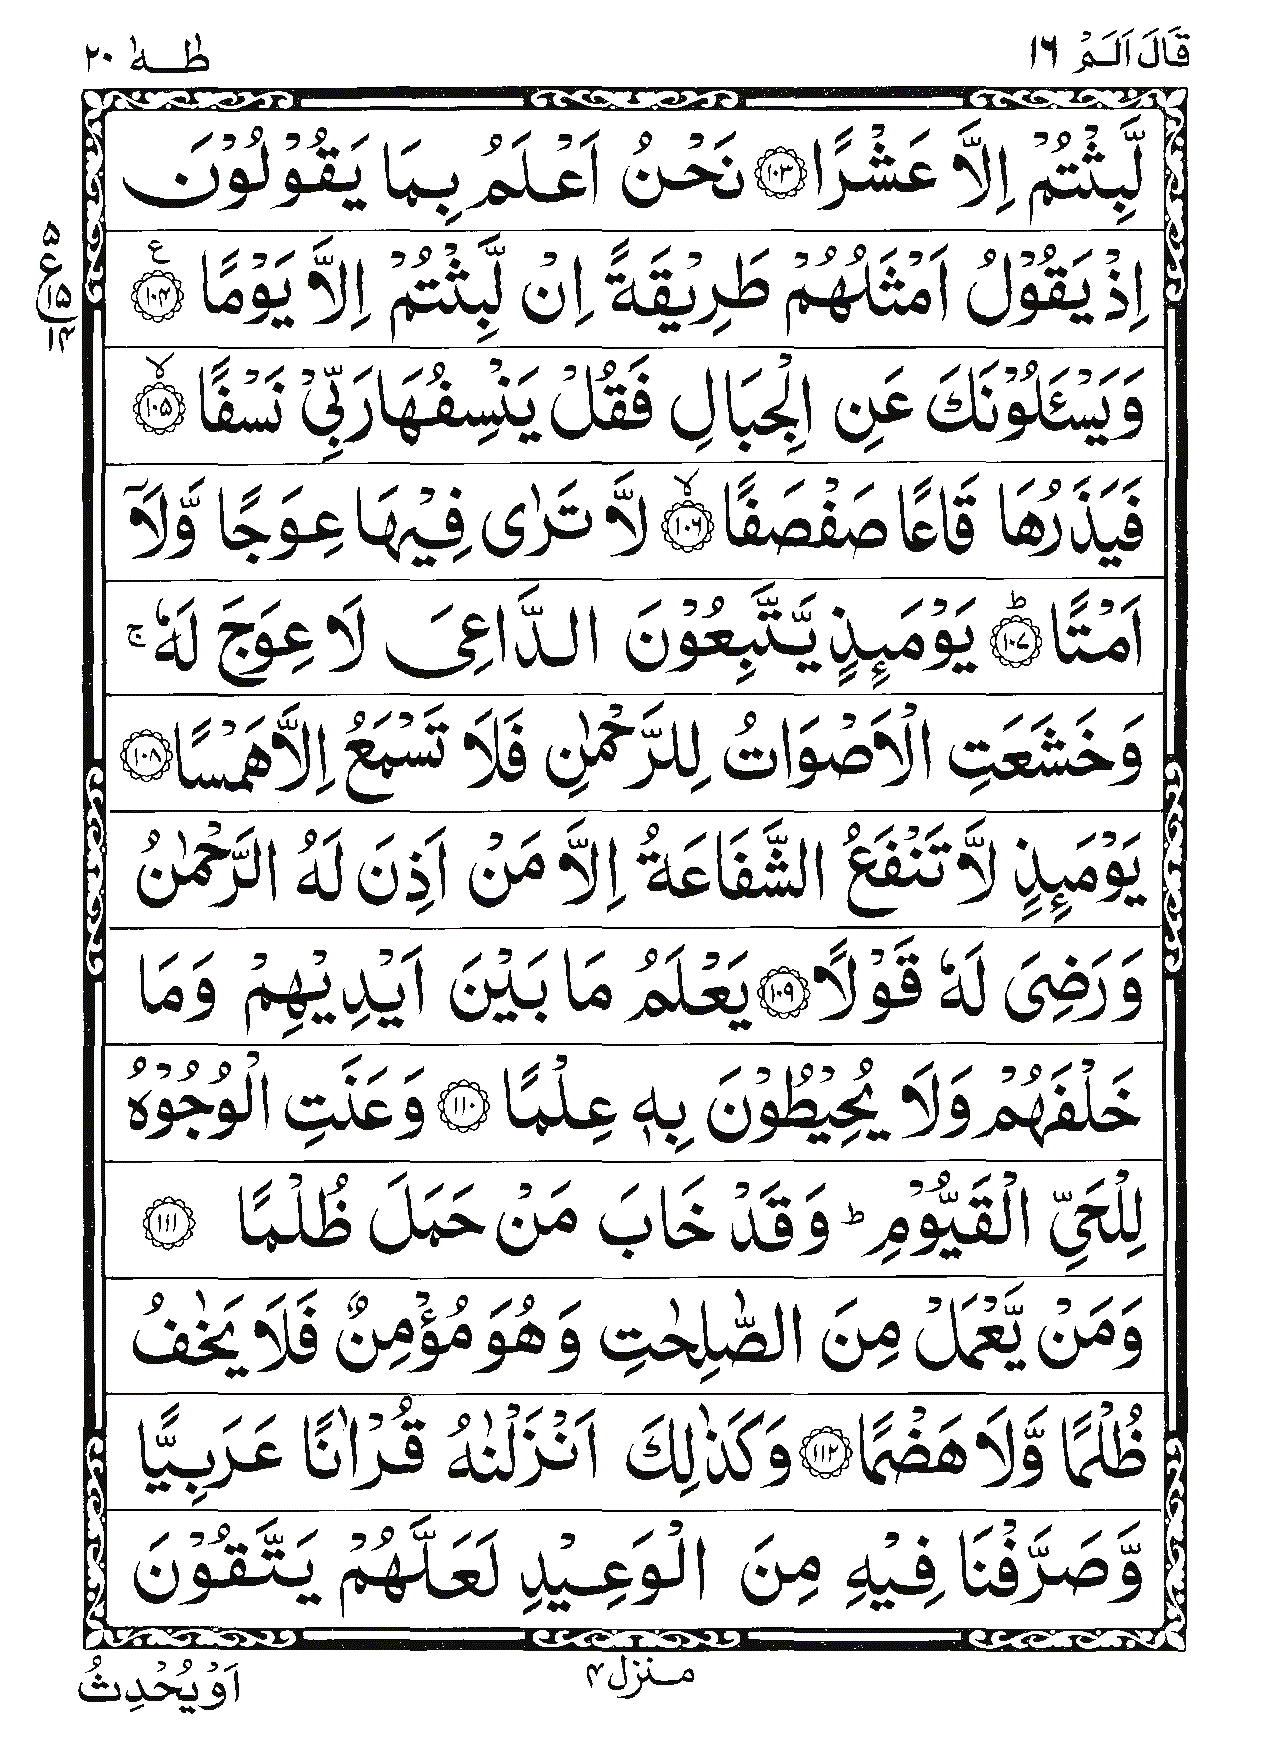 قَالَ اَلَمْ ١٦ طٰهٰ ٢٠
لَّبِثْتُمْ اِلَّا عَشْرًا ﴿١٠٣﴾ نَحْنُ اَعْلَمُ بِمَا يَقُوْلُوْنَ
اِذْ يَقُوْلُ اَمْثَلُهُمْ طَرِيْقَةً اِنْ لَّبِثْتُمْ اِلَّا يَوْمًا ﴿١٠٤﴾ ع
٥ ع ١٥ ١٤
وَيَسْـَٔلُوْنَكَ عَنِ الْجِبَالِ فَقُلْ يَنْسِفُهَا رَبِّيْ نَسْفًا ﴿١٠٥﴾ لا
فَيَذَرُهَا قَاعًا صَفْصَفًا ﴿١٠٦﴾ لا لَّا تَرٰى فِيْهَا عِوَجًا وَّلَآ
اَمْتًا ﴿١٠٧﴾ ط يَوْمَىِٕذٍ يَّتَّبِعُوْنَ الدَّاعِىَ لَا عِوَجَ لَهٗ ج
وَخَشَعَتِ الْاَصْوَاتُ لِلرَّحْمٰنِ فَلَا تَسْمَعُ اِلَّا هَمْسًا ﴿١٠٨﴾
يَوْمَىِٕذٍ لَّا تَنْفَعُ الشَّفَاعَةُ اِلَّا مَنْ اَذِنَ لَهُ الرَّحْمٰنُ
وَرَضِىَ لَهٗ قَوْلًا ﴿١٠٩﴾ يَعْلَمُ مَا بَيْنَ اَيْدِيْهِمْ وَمَا
خَلْفَهُمْ وَلَا يُحِيْطُوْنَ بِهٖ عِلْمًا ﴿١١٠﴾ وَعَنَتِ الْوُجُوْهُ
لِلْحَىِّ الْقَيُّوْمِ ط وَقَدْ خَابَ مَنْ حَمَلَ ظُلْمًا ﴿١١١﴾
وَمَنْ يَّعْمَلْ مِنَ الصّٰلِحٰتِ وَهُوَ مُؤْمِنٌ فَلَا يَخٰفُ
ظُلْمًا وَّلَا هَضْمًا ﴿١١٢﴾ وَكَذٰلِكَ اَنْزَلْنٰهُ قُرْاٰنًا عَرَبِيًّا
وَّصَرَّفْنَا فِيْهِ مِنَ الْوَعِيْدِ لَعَلَّهُمْ يَتَّقُوْنَ
منزل ٤
اَوْ يُحْدِثُ